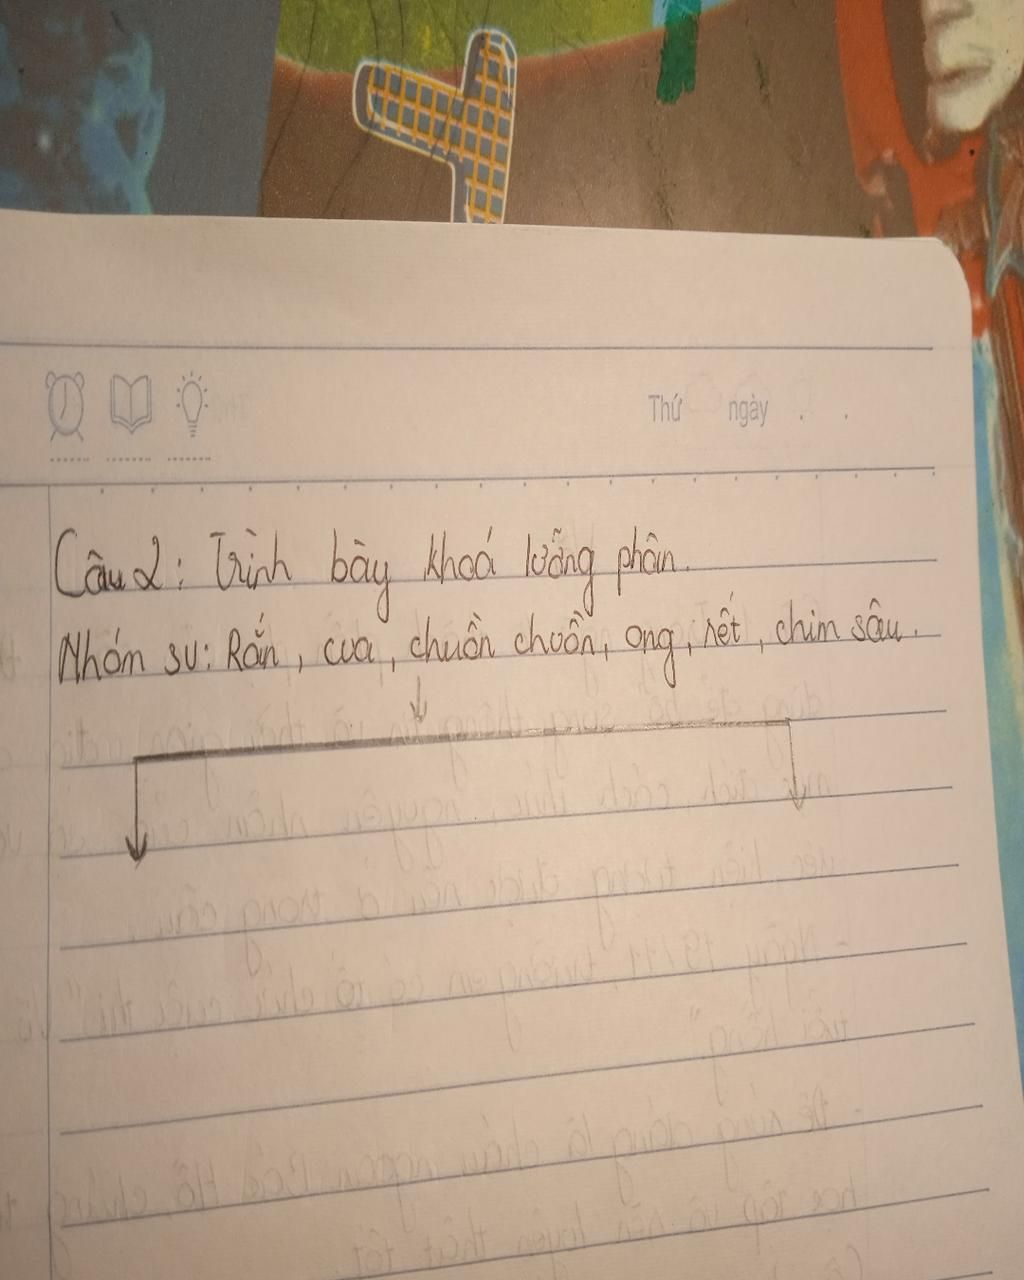 Thứ ngày . .
Câu 2: Trình bày khoá lưỡng phân.
Nhóm sv: Rắn, cua, chuồn chuồn, ong, rết, chim sâu.